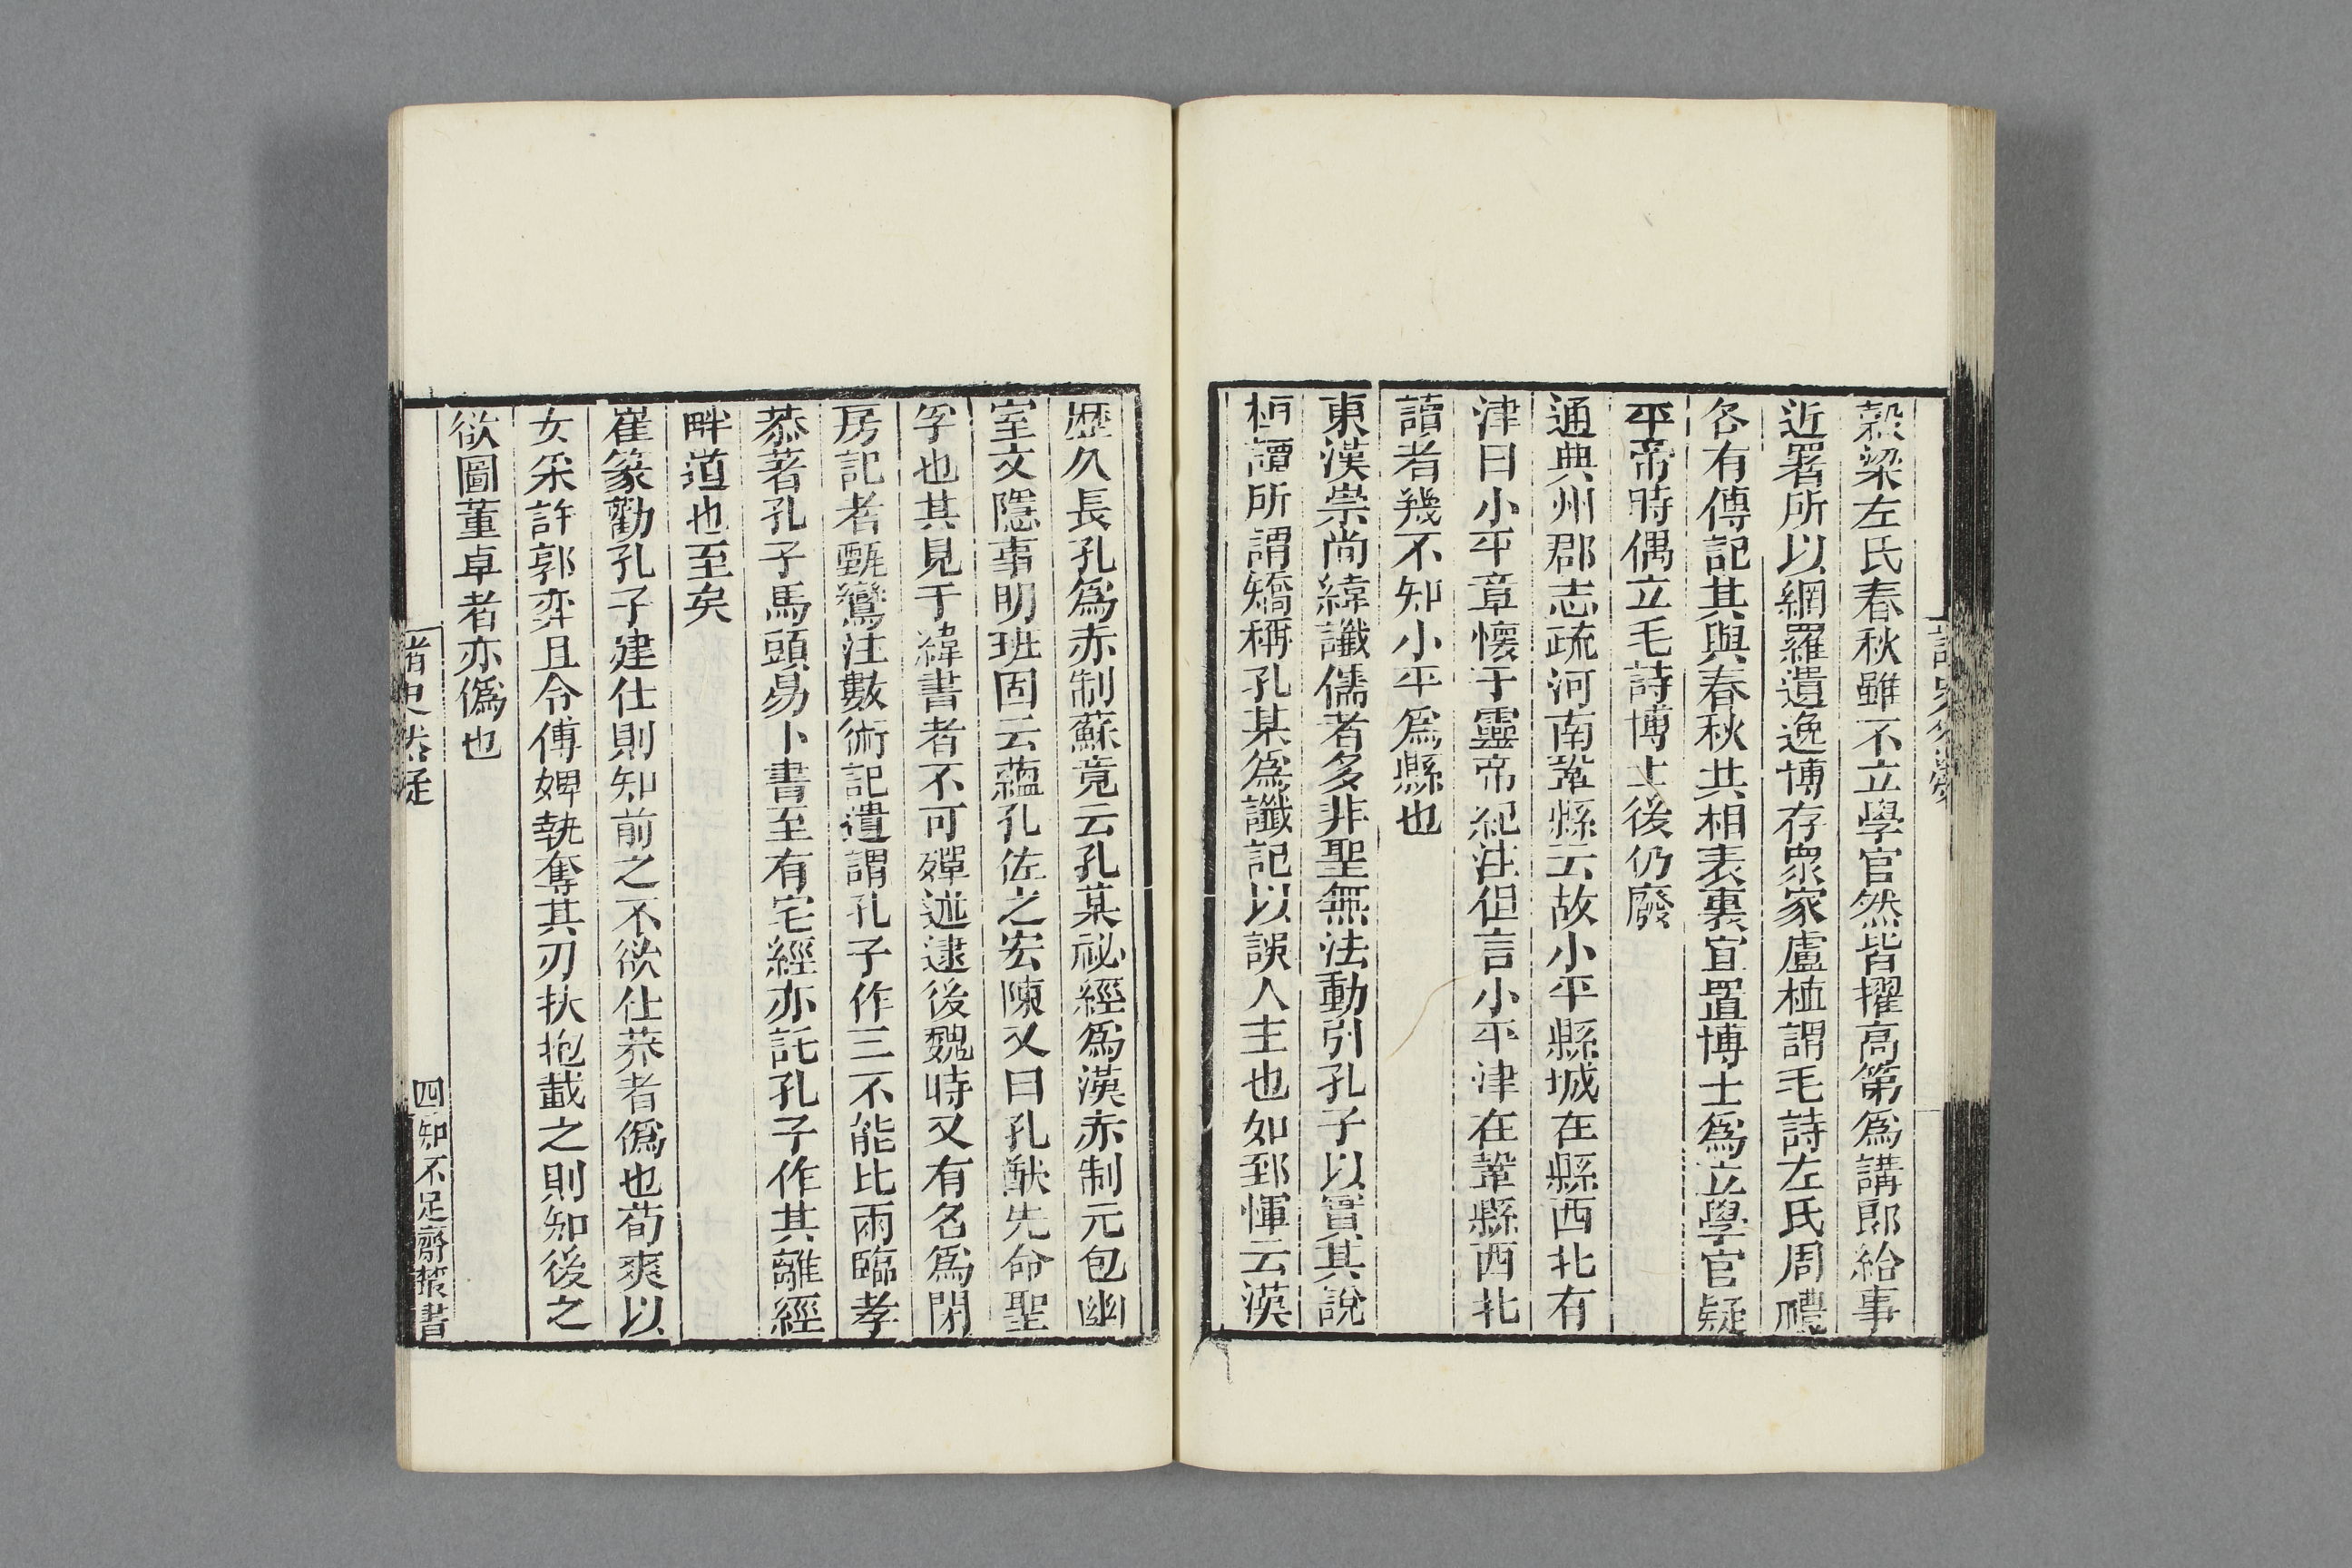 穀梁左氏春秋雖不立學官然皆擢高第爲講郎給事
近署所以網羅遺逸博存衆家盧植謂毛詩左氏周禮
各有傳記其與春秋共相表裏宜置博士爲立學官疑
平帝時偶立毛詩博士後仍廢
通典州郡志疏河南鞏縣云故小平縣城在縣西北有
津曰小平章懷于靈帝紀注但言小平津在鞏縣西北
讀者幾不知小平爲縣也
東漢崇尚緯讖儒者多非聖無法動引孔子以實其說
桓譚所謂矯稱孔某爲讖記以誤人主也如郅惲云漢
歷久長孔爲赤制蘇竟云孔某祕經爲漢赤制元包幽
室文隱事明班固云蘊孔佐之宏陳又曰孔猷先命聖
孚也其見于緯書者不可殫述逮後魏時又有名爲閉
房記者甄鸞注數術記遺謂孔子作三不能比兩臨孝
恭著孔子馬頭易卜書至有宅經亦託孔子作其離經
畔道也至矣
崔篆勸孔子建仕則知前之不欲仕莽者僞也荀爽以
女采許郭奕且令傅婢執奪其刃扶抱載之則知後之
欲圖董卓者亦僞也
諸史然疑
四
知不足齋叢書